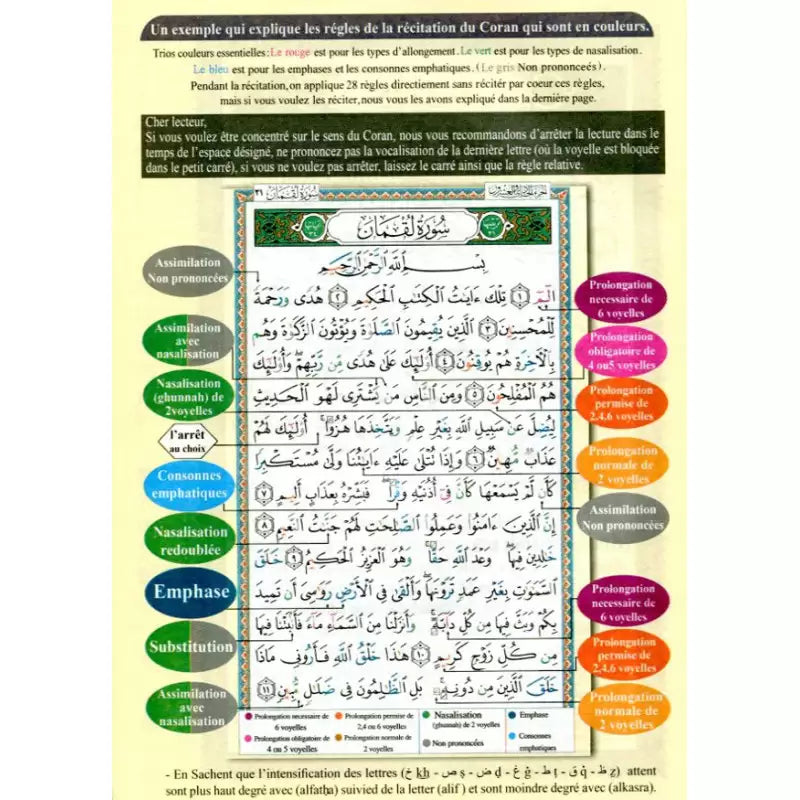 Un exemple qui explique les régles de la récitation du Coran qui sont en couleurs.
Trios couleurs essentielles:Le rouge est pour les types d'allongement.Le vert est pour les types de nasalisation.
Le bleu est pour les emphases et les consonnes emphatiques.(Le gris Non prononceés).
Pendant la récitation,on applique 28 règles directement sans récité par coeur ces règles,
mais si vous voulez les réciter,nous vous les avons expliqué dans la dernière page.
Cher lecteur,
Si vous voulez être concentré sur le sens du Coran, nous vous recommandons d'arrêter la lecture dans le
temps de l'espace désigné, ne prononcez pas la vocalisation de la dernière lettre (où la voyelle est bloquée
dans le petit carré), si vous ne voulez pas arrêter, laissez le carré ainsi que la règle relative.
سُورَةُ لُقْمَان ٣١
سُورَةُ لُقْمَانَ
بِسْمِ اللَّهِ الرَّحْمَٰنِ الرَّحِيمِ
الٓمٓ ١ تِلْكَ ءَايَٰتُ الْكِتَٰبِ الْحَكِيمِ ٢ هُدًى وَرَحْمَةً
لِّلْمُحْسِنِينَ ٣ الَّذِينَ يُقِيمُونَ الصَّلَوٰةَ وَيُؤْتُونَ الزَّكَوٰةَ وَهُم
بِالْءَاخِرَةِ هُمْ يُوقِنُونَ ٤ أُو۟لَٰٓئِكَ عَلَىٰ هُدًى مِّن رَّبِّهِمْ وَأُو۟لَٰٓئِكَ
هُمُ الْمُفْلِحُونَ ٥ وَمِنَ النَّاسِ مَن يَشْتَرِى لَهْوَ الْحَدِيثِ
لِيُضِلَّ عَن سَبِيلِ اللَّهِ بِغَيْرِ عِلْمٍ وَيَتَّخِذَهَا هُزُوًا أُو۟لَٰٓئِكَ لَهُمْ
عَذَابٌ مُّهِينٌ ٦ وَإِذَا تُتْلَىٰ عَلَيْهِ ءَايَٰتُنَا وَلَّىٰ مُسْتَكْبِرًا
كَأَن لَّمْ يَسْمَعْهَا كَأَنَّ فِىٓ أُذُنَيْهِ وَقْرًا فَبَشِّرْهُ بِعَذَابٍ أَلِيمٍ ٧
إِنَّ الَّذِينَ ءَامَنُوا۟ وَعَمِلُوا۟ الصَّٰلِحَٰتِ لَهُمْ جَنَّٰتُ النَّعِيمِ ٨
خَٰلِدِينَ فِيهَا وَعْدَ اللَّهِ حَقًّا وَهُوَ الْعَزِيزُ الْحَكِيمُ ٩ خَلَقَ
السَّمَٰوَٰتِ بِغَيْرِ عَمَدٍ تَرَوْنَهَا وَأَلْقَىٰ فِى الْأَرْضِ رَوَٰسِىَ أَن تَمِيدَ
بِكُمْ وَبَثَّ فِيهَا مِن كُلِّ دَآبَّةٍ وَأَنزَلْنَا مِنَ السَّمَآءِ مَآءً فَأَنۢبَتْنَا فِيهَا
مِن كُلِّ زَوْجٍ كَرِيمٍ ١٠ هَٰذَا خَلْقُ اللَّهِ فَأَرُونِى مَاذَا
خَلَقَ الَّذِينَ مِن دُونِهِ بَلِ الظَّٰلِمُونَ فِى ضَلَٰلٍ مُّبِينٍ ١١
Assimilation
Non prononcées
Assimilation
avec
nasalisation
Nasalisation
(ghunnah) de
2voyelles
l'arrêt
au choix
Consonnes
emphatiques
Nasalisation
redoublée
Emphase
Substitution
Assimilation
avec
nasalisation
Prolongation
necessaire de
6 voyelles
Prolongation
obligatoire de
4 ou5 voyelles
Prolongation
permise de
2,4,6 voyelles
Prolongation
normale de
2 voyelles
Assimilation
Non prononcées
Prolongation
necessaire de
6 voyelles
Prolongation
permise de
2,4,6 voyelles
Prolongation
normale de
2 voyelles
Prolongation necessaire de
6 voyelles
Prolongation permise de
2,4 ou 6 voyelles
Nasalisation
(ghunnah) de 2 voyelles
Emphase
Prolongation obligatoire de
4 ou 5 voyelles
Prolongation normale de
2 voyelles
Non prononcées
Consonnes
emphatiques
- En Sachent que l'intensification des lettres (خ kh - ص ṣ - ض ḍ - غ ġ - ط ṭ - ق q - ظ ẓ) attent
sont plus haut degré avec (alfatḥa) suivied de la letter (alif) et sont moindre degré avec (alkasra).